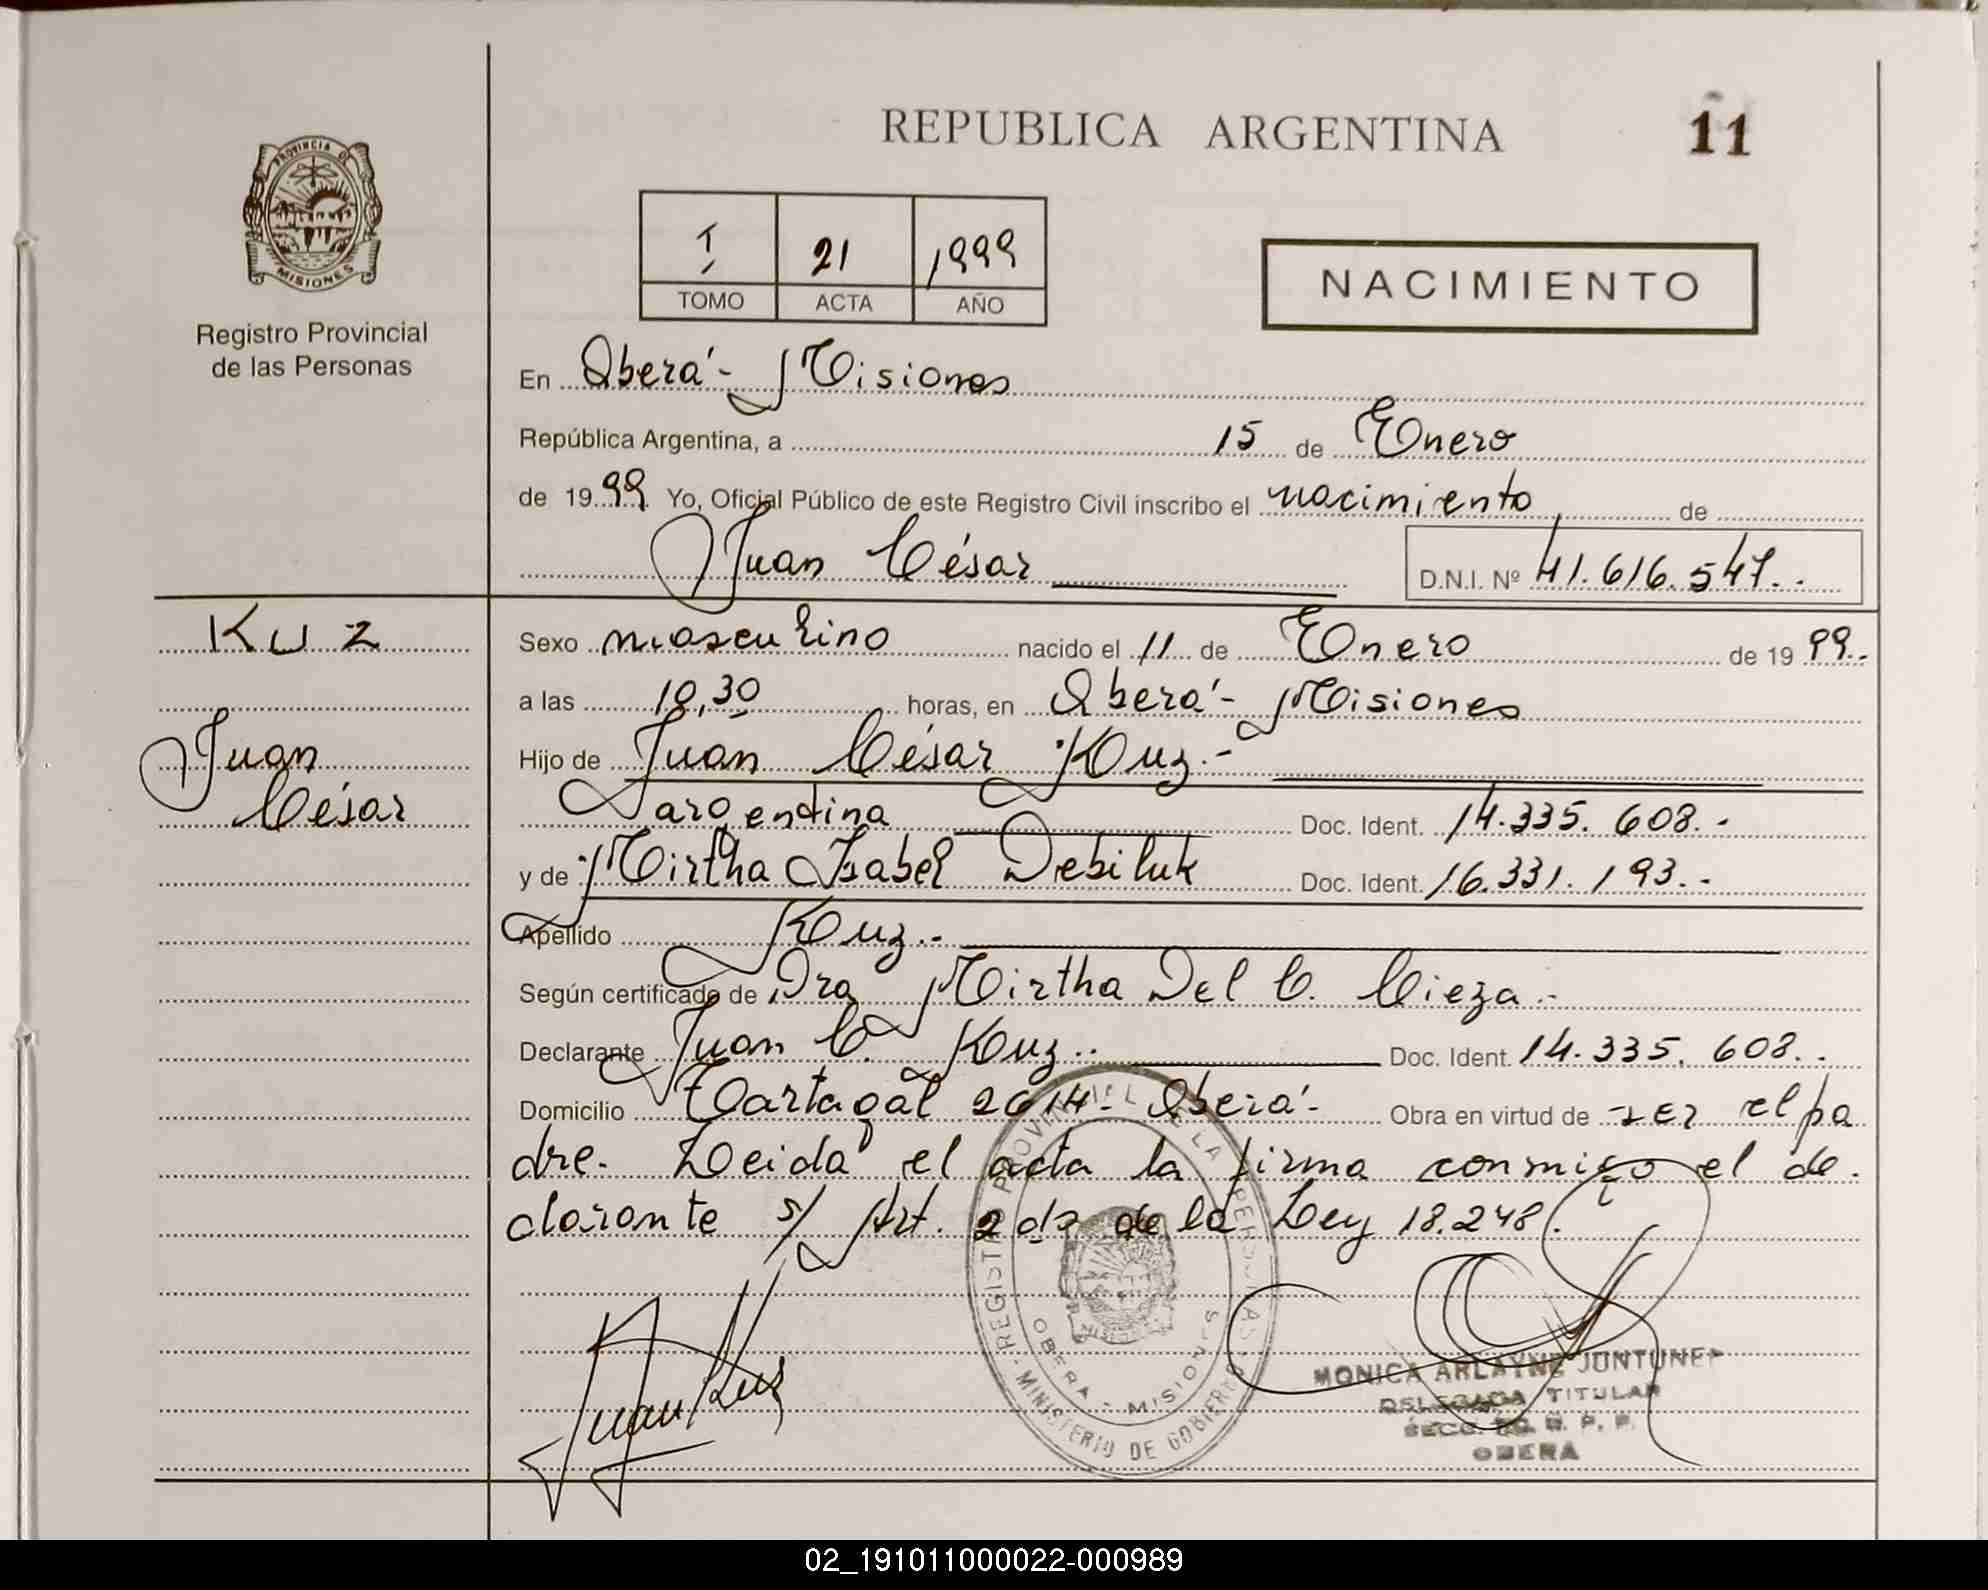 REPUBLICA ARGENTINA
11
PROVINCIA DE
MISIONES
Registro Provincial
de las Personas
I 21 1999
TOMO ACTA AÑO
NACIMIENTO
En Oberá - Misiones
República Argentina, a 15 de Enero
de 1999 Yo, Oficial Público de este Registro Civil inscribo el nacimiento de
Juan César D.N.I. Nº 41.616.547.-
KUZ
Juan
César
Sexo masculino nacido el 11 de Enero de 1999.-
a las 10,30 horas, en Oberá - Misiones
Hijo de Juan César Kuz.-
argentina Doc. Ident. 14.335.608.-
y de Mirtha Isabel Debiluk Doc. Ident. 16.331.193.-
Apellido Kuz.-
Según certificado de Dra Mirtha Del C. Cieza.-
Declarante Juan C. Kuz.- Doc. Ident. 14.335.608.-
Domicilio Tartagal 2614 - Oberá - Obra en virtud de ser el pa
dre. Leida el acta la firma conmigo el de-
clarante s/ Art. 2do de la Ley 18.248.
Juan Kuz
REGISTRO PROVINCIAL DE LAS PERSONAS - MINISTERIO DE GOBIERNO
OBERA - MISIONES
MONICA ARLAYNE JUNTUNEN
DELEGADA TITULAR
SECC. R. P. P.
OBERA
02_191011000022-000989